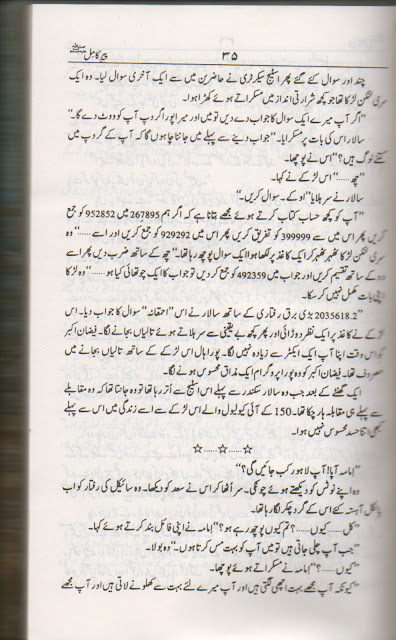 پیر کامل ﷺ
۳۵
چند اور سوال کئے گئے پھر اسٹیج سیکرٹری نے حاضرین میں سے ایک آخری سوال لیا۔ وہ ایک
سری لنکن لڑکا تھا جو کچھ شرارتی انداز میں مسکراتے ہوئے کھڑا ہوا۔
”اگر آپ میرے ایک سوال کا جواب دے دیں تو میں اور میرا پورا گروپ آپ کو ووٹ دے گا۔“
سالار اس کی بات پر مسکرایا۔ ”جواب دینے سے پہلے میں جاننا چاہوں گا کہ آپ کے گروپ میں
کتنے لوگ ہیں؟“ اس نے پوچھا۔
”چھ......“ اس لڑکے نے کہا۔
سالار نے سر ہلایا ”اوکے۔ سوال کریں۔“
”آپ کو کچھ حساب کتاب کرتے ہوئے مجھے بتانا ہے کہ اگر ہم 267895 میں 952852 کو جمع
کریں پھر اس میں سے 399999 کو تفریق کریں پھر اس میں 929292 کو جمع کریں اور اسے......“ وہ
سری لنکن لڑکا ٹھہر ٹھہر کر ایک کاغذ پر لکھا ہوا ایک سوال پوچھ رہا تھا۔ ”چھ کے ساتھ ضرب دیں پھر اسے
دو کے ساتھ تقسیم کریں اور جواب میں 492359 کو جمع کر دیں تو جواب کا ایک چوتھائی کیا ہو......“ وہ لڑکا
اپنی بات مکمل نہیں کر سکا۔
”2035618.2 بڑی برق رفتاری کے ساتھ سالار نے اس ”احمقانہ“ سوال کا جواب دیا۔ اس
لڑکے نے کاغذ پر ایک نظر دوڑائی اور پھر کچھ بے یقینی سے سر ہلاتے ہوئے تالیاں بجانے لگا۔ فیضان اکبر
کو اس وقت اپنا آپ ایک ایکٹر سے زیادہ نہیں لگا۔ پورا ہال اس لڑکے کے ساتھ تالیاں بجانے میں
مصروف تھا۔ فیضان اکبر کو وہ پورا پروگرام ایک مذاق محسوس ہونے لگا۔
ایک گھنٹے کے بعد جب وہ سالار سکندر سے پہلے اس اسٹیج سے اُتر رہا تھا تو وہ جانتا تھا کہ وہ مقابلے
سے پہلے ہی مقابلہ ہار چکا تھا۔ 150 کے آئی کیو لیول والے اس لڑکے سے اسے زندگی میں اس سے پہلے
کبھی اتنا حسد محسوس نہیں ہوا۔
☆......☆......☆
”امامہ آپا! آپ لاہور کب جائیں گی؟“
وہ اپنے نوٹس کو دیکھتے ہوئے چونکی۔ سر اٹھا کر اس نے سعد کو دیکھا۔ وہ سائیکل کی رفتار کو اب
بالکل آہستہ کئے اس کے گرد چکر لگا رہا تھا۔
”کل...... کیوں......؟ تم کیوں پوچھ رہے ہو؟“ امامہ نے اپنی فائل بند کرتے ہوئے کہا۔
”جب آپ چلی جاتی ہیں تو میں آپ کو بہت مس کرتا ہوں۔“ وہ بولا۔
”کیوں......؟“ امامہ نے مسکراتے ہوئے پوچھا۔
”کیونکہ آپ مجھے بہت اچھی لگتی ہیں اور آپ میرے لئے بہت سے کھلونے لاتی ہیں اور آپ مجھے